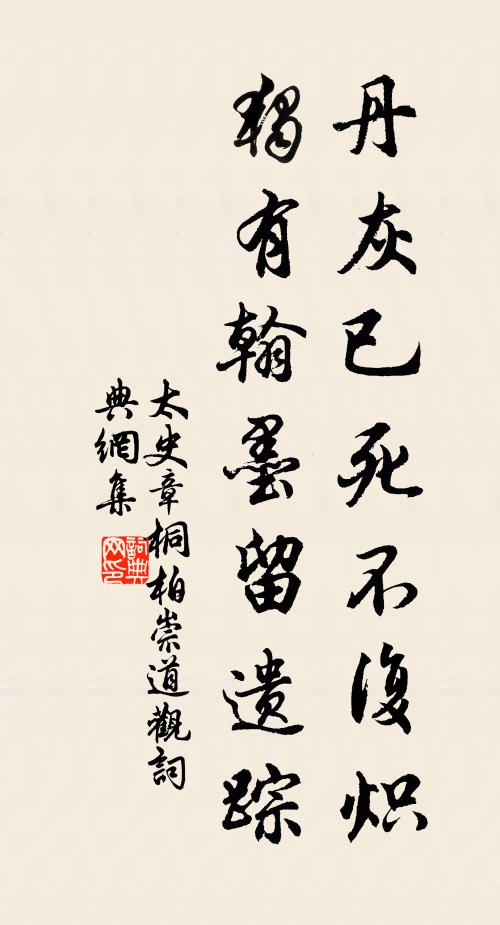 丹灰已死不復炽
獨有翰墨留遺踪
太史章桐柏崇道觀詞
典網集
詞典网印